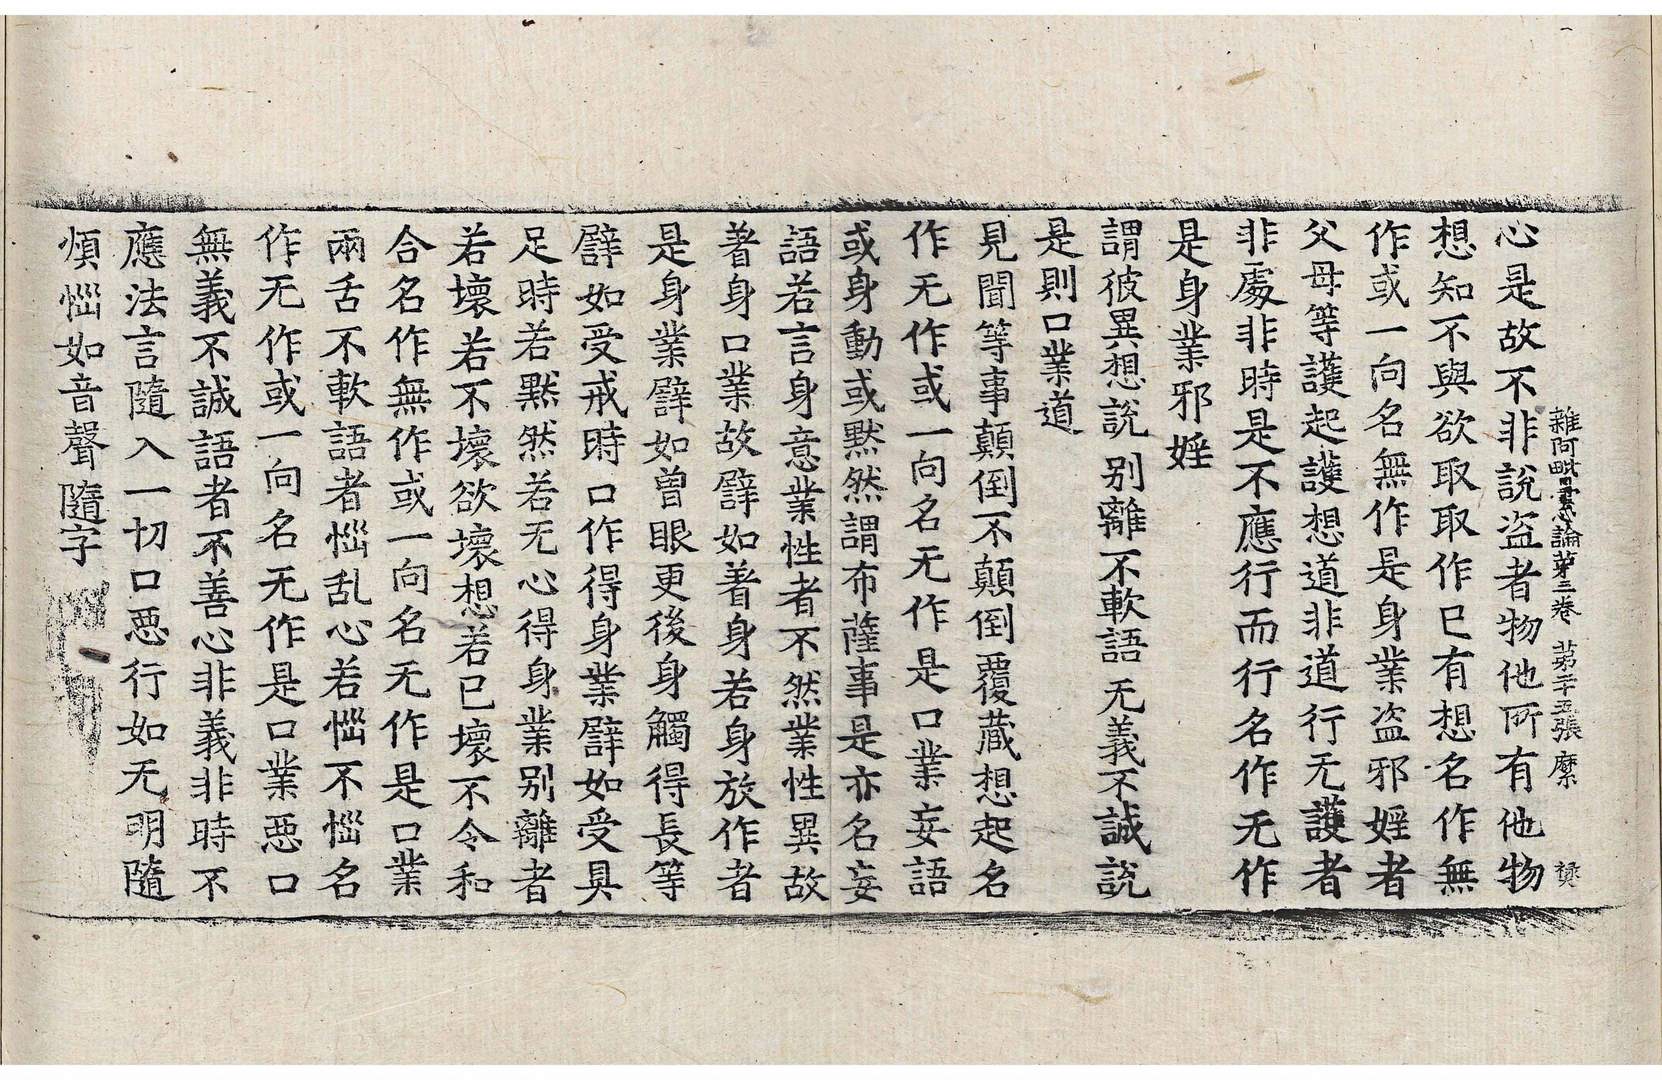 雜阿毗曇心論第三卷 第二十五張 縻 樊
心是故不非說盗者物他所有他物
想知不與欲取取作已有想名作無
作或一向名無作是身業盗邪婬者
父母等護起護想道非道行无護者
非處非時是不應行而行名作无作
是身業邪婬
謂彼異想說 别離不軟語 无義不誠說
是則口業道
見聞等事顛倒不顛倒覆藏想起名
作无作或一向名无作是口業妄語
或身動或默然謂布薩事是亦名妄
語若言身意業性者不然業性異故
著身口業故譬如著身若身放作者
是身業譬如曽眼更後身觸得長等
譬如受戒時口作得身業譬如受具
足時若默然若无心得身業别離者
若壞若不壞欲壞想若已壞不令和
合名作無作或一向名无作是口業
兩舌不軟語者惱乱心若惱不惱名
作无作或一向名无作是口業惡口
無義不誠語者不善心非義非時不
應法言隨入一切口惡行如无明隨
煩惱如音聲隨字